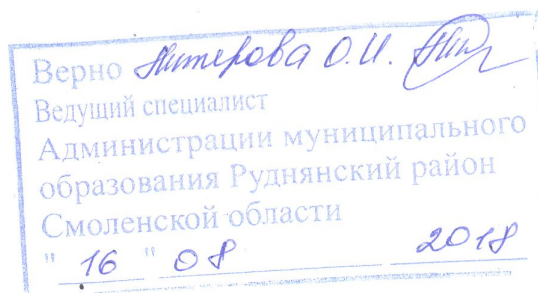 Верно Нитерова О.И.
Ведущий специалист
Администрации муниципального
образования Руднянский район
Смоленской области
" 16 " 08 2018